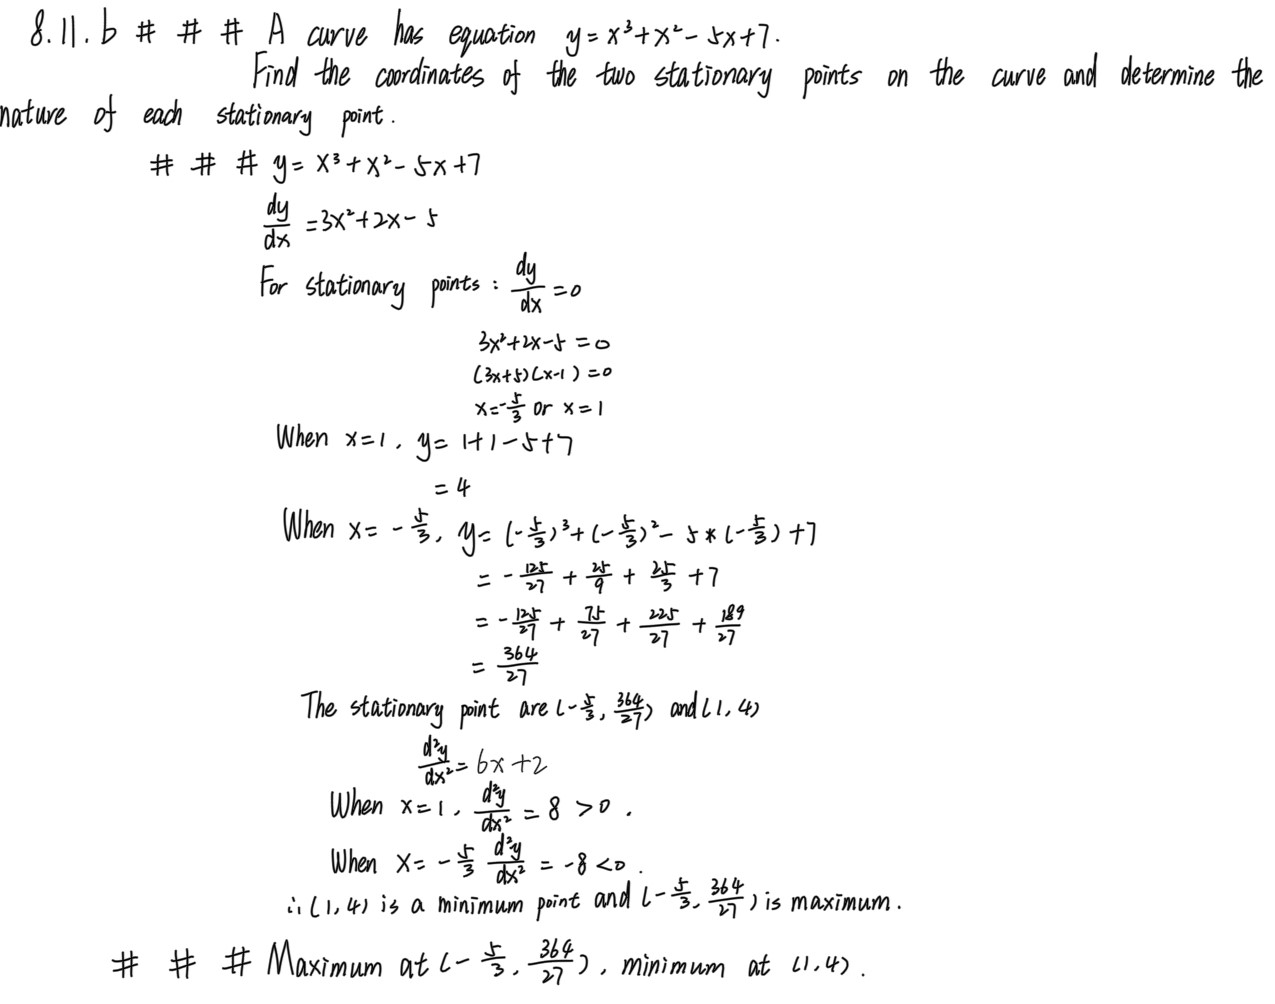 8.11.b # # # A curve has equation y = x³ + x² - 5x + 7.
Find the coordinates of the two stationary points on the curve and determine the
nature of each stationary point.
# # # y = x³ + x² - 5x + 7
dy/dx = 3x² + 2x - 5
For stationary points : dy/dx = 0
3x² + 2x - 5 = 0
(3x+5)(x-1) = 0
x = -5/3 or x = 1
When x = 1, y = 1 + 1 - 5 + 7
= 4
When x = -5/3, y = (-5/3)³ + (-5/3)² - 5 * (-5/3) + 7
= -125/27 + 25/9 + 25/3 + 7
= -125/27 + 75/27 + 225/27 + 189/27
= 364/27
The stationary point are (-5/3, 364/27) and (1, 4)
d²y/dx² = 6x + 2
When x = 1, d²y/dx² = 8 > 0.
When x = -5/3 d²y/dx² = -8 < 0.
∴ (1, 4) is a minimum point and (-5/3, 364/27) is maximum.
# # # Maximum at (-5/3, 364/27), minimum at (1, 4).